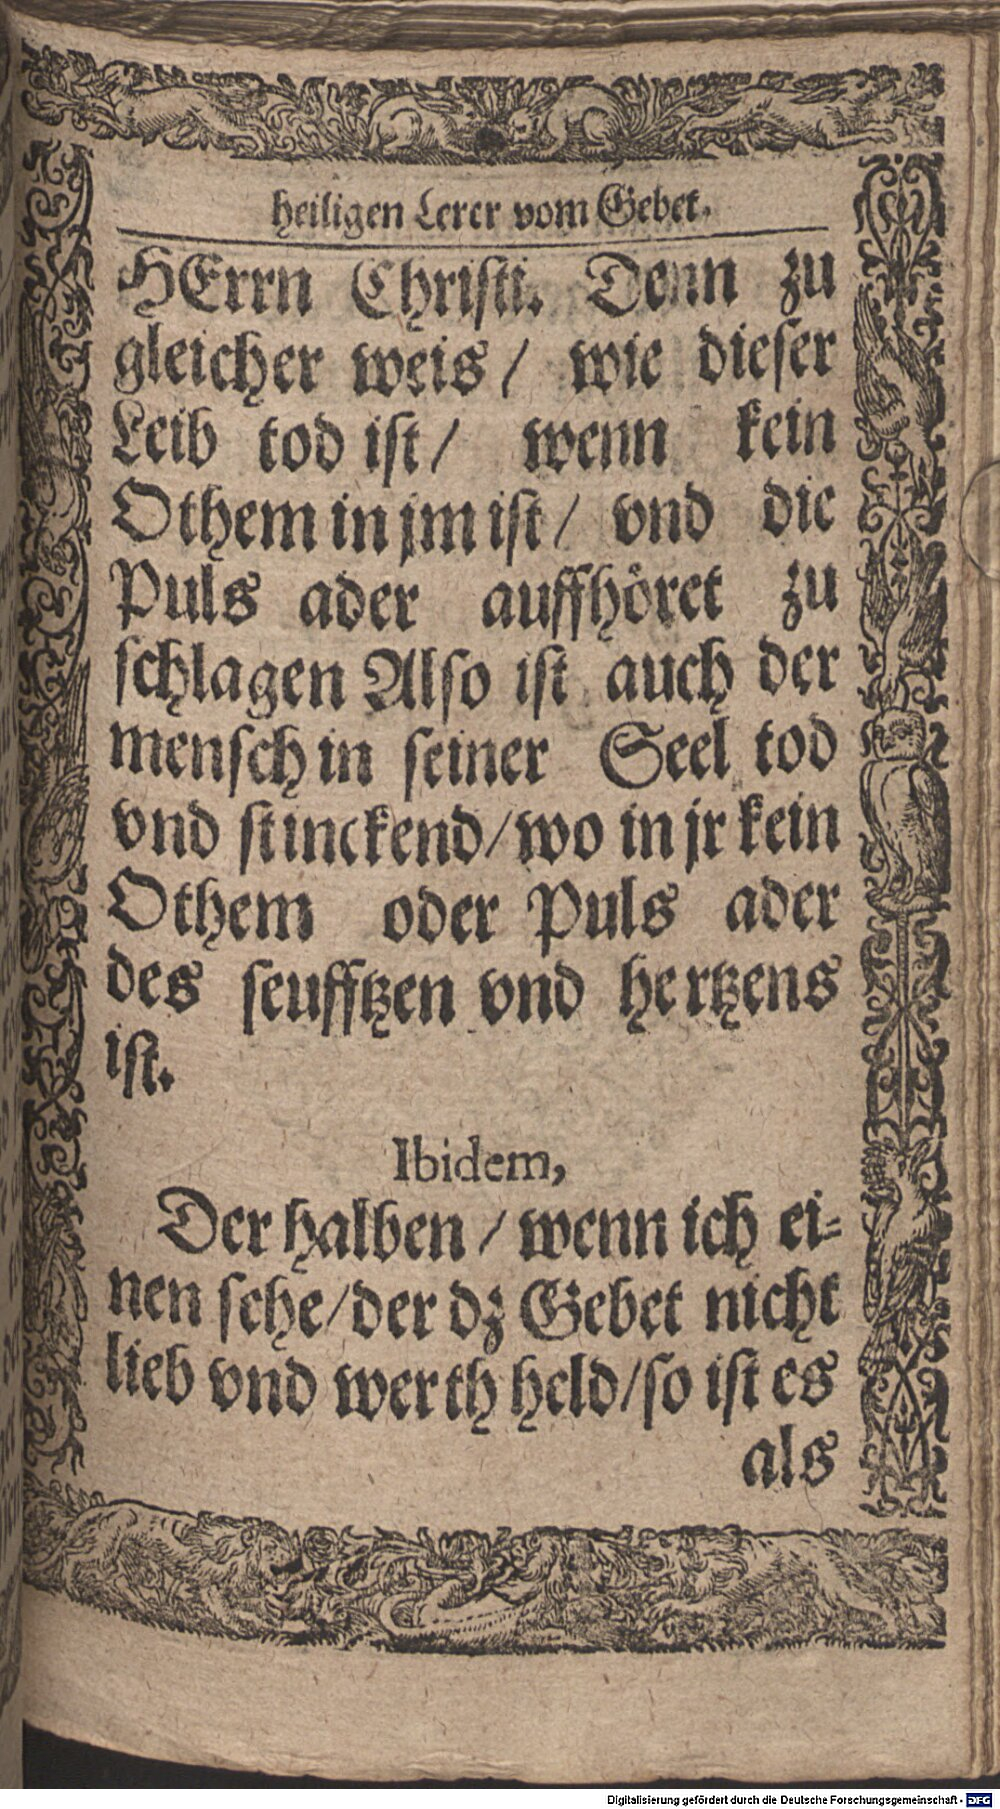 heiligen Lerer vom Gebet.
HErrn Christi. Denn zu
gleicher weis / wie dieser
Leib tod ist / wenn kein
Othem in jm ist / vnd die
Puls ader auffhöret zu
schlagen Also ist auch der
mensch in seiner Seel tod
vnd stinckend / wo in jr kein
Othem oder Puls ader
des seufftzen vnd hertzens
ist.
Ibidem,
Der halben / wenn ich ei-
nen sehe / der dz Gebet nicht
lieb vnd werth held / so ist es
als
Digitalisierung gefördert durch die Deutsche Forschungsgemeinschaft - DFG